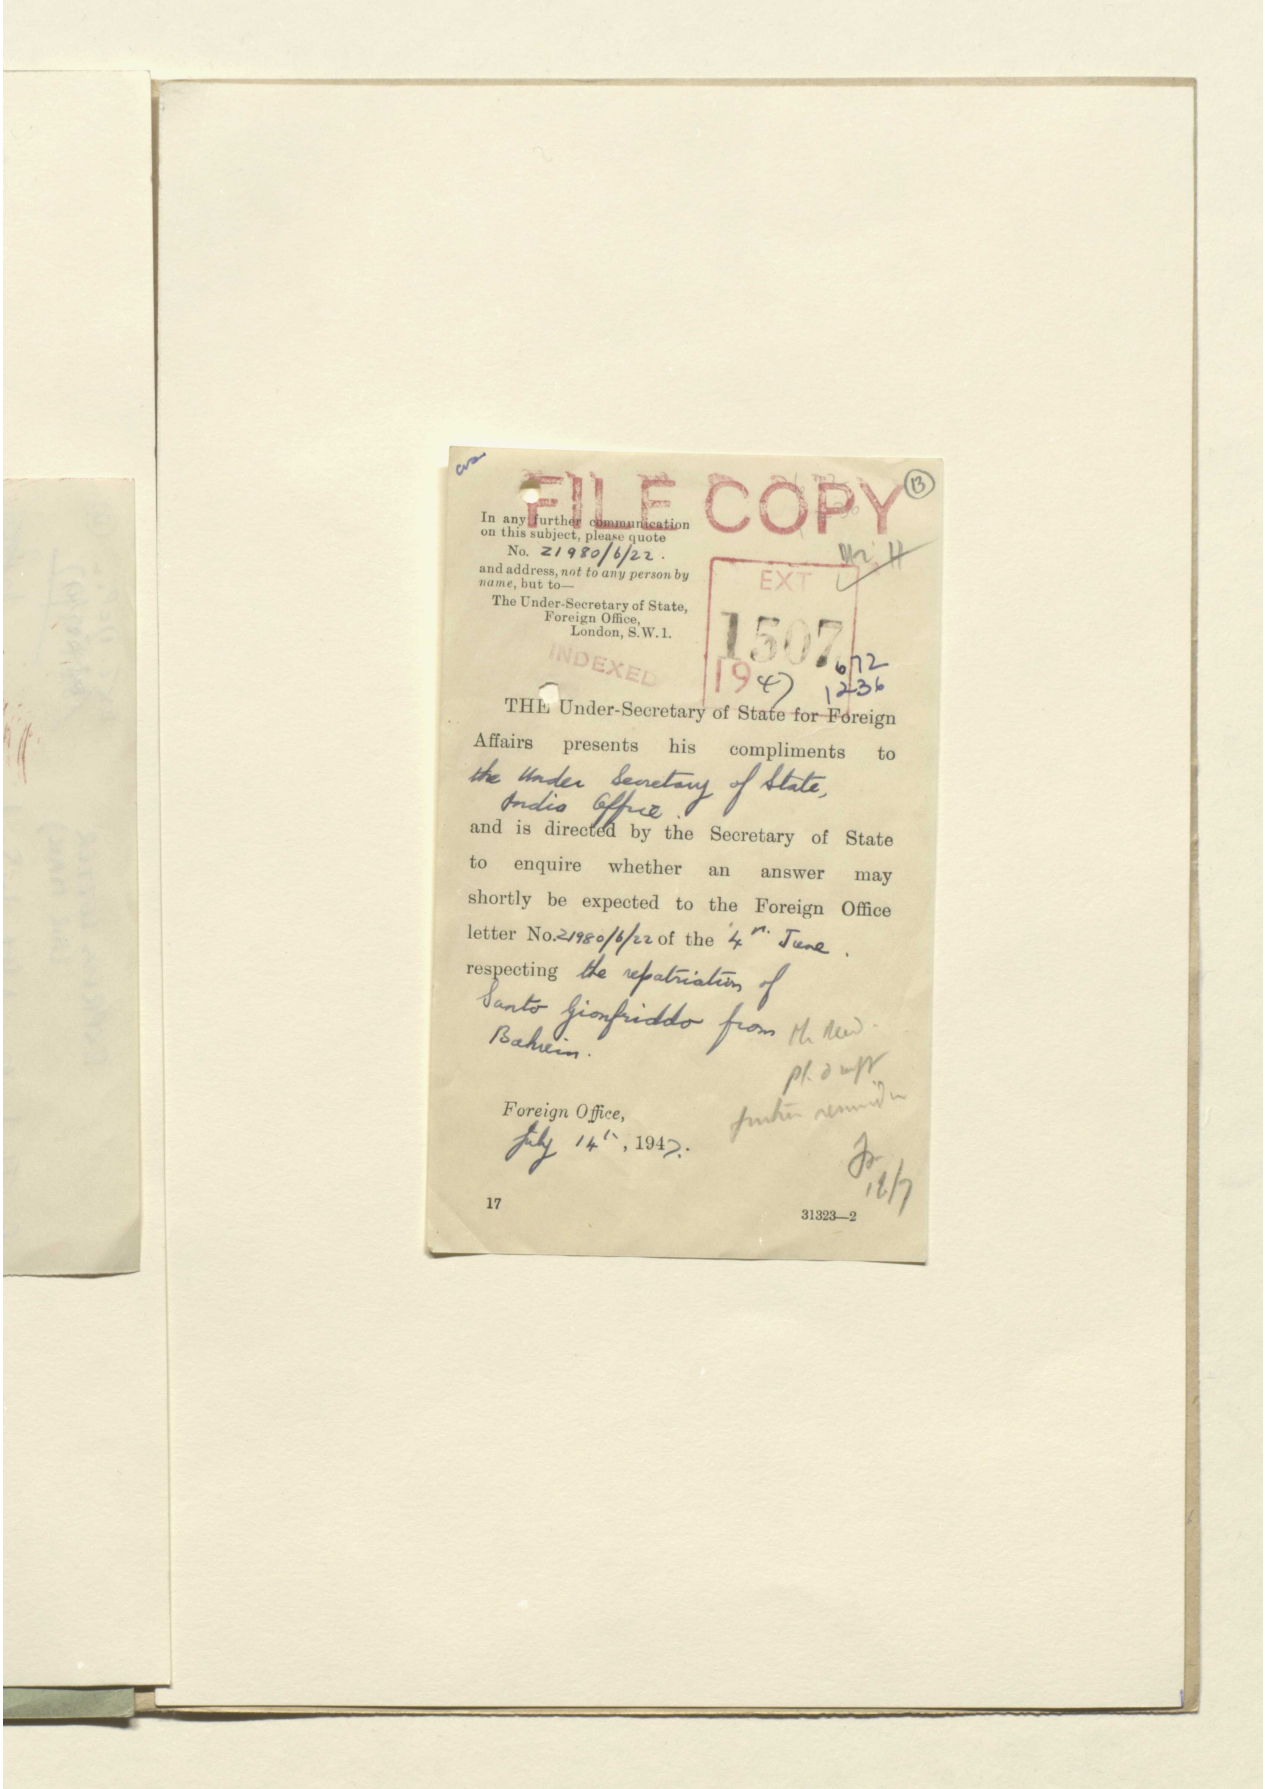 FILE COPY
13
In any further communication
on this subject, please quote
No. Z1980/6/22.
and address, not to any person by
name, but to—
The Under-Secretary of State,
Foreign Office,
London, S.W.1.
EXT
1507
1947
672
1236
INDEXED
THE Under-Secretary of State for Foreign
Affairs presents his compliments to
the Under Secretary of State,
India Office.
and is directed by the Secretary of State
to enquire whether an answer may
shortly be expected to the Foreign Office
letter No. Z1980/6/22 of the 4th June.
respecting the repatriation of
Santo Gionfriddo from
Bahrein.
pl. draft
further reminder
Foreign Office,
July 14th, 1947.
18/7
17
31323—2